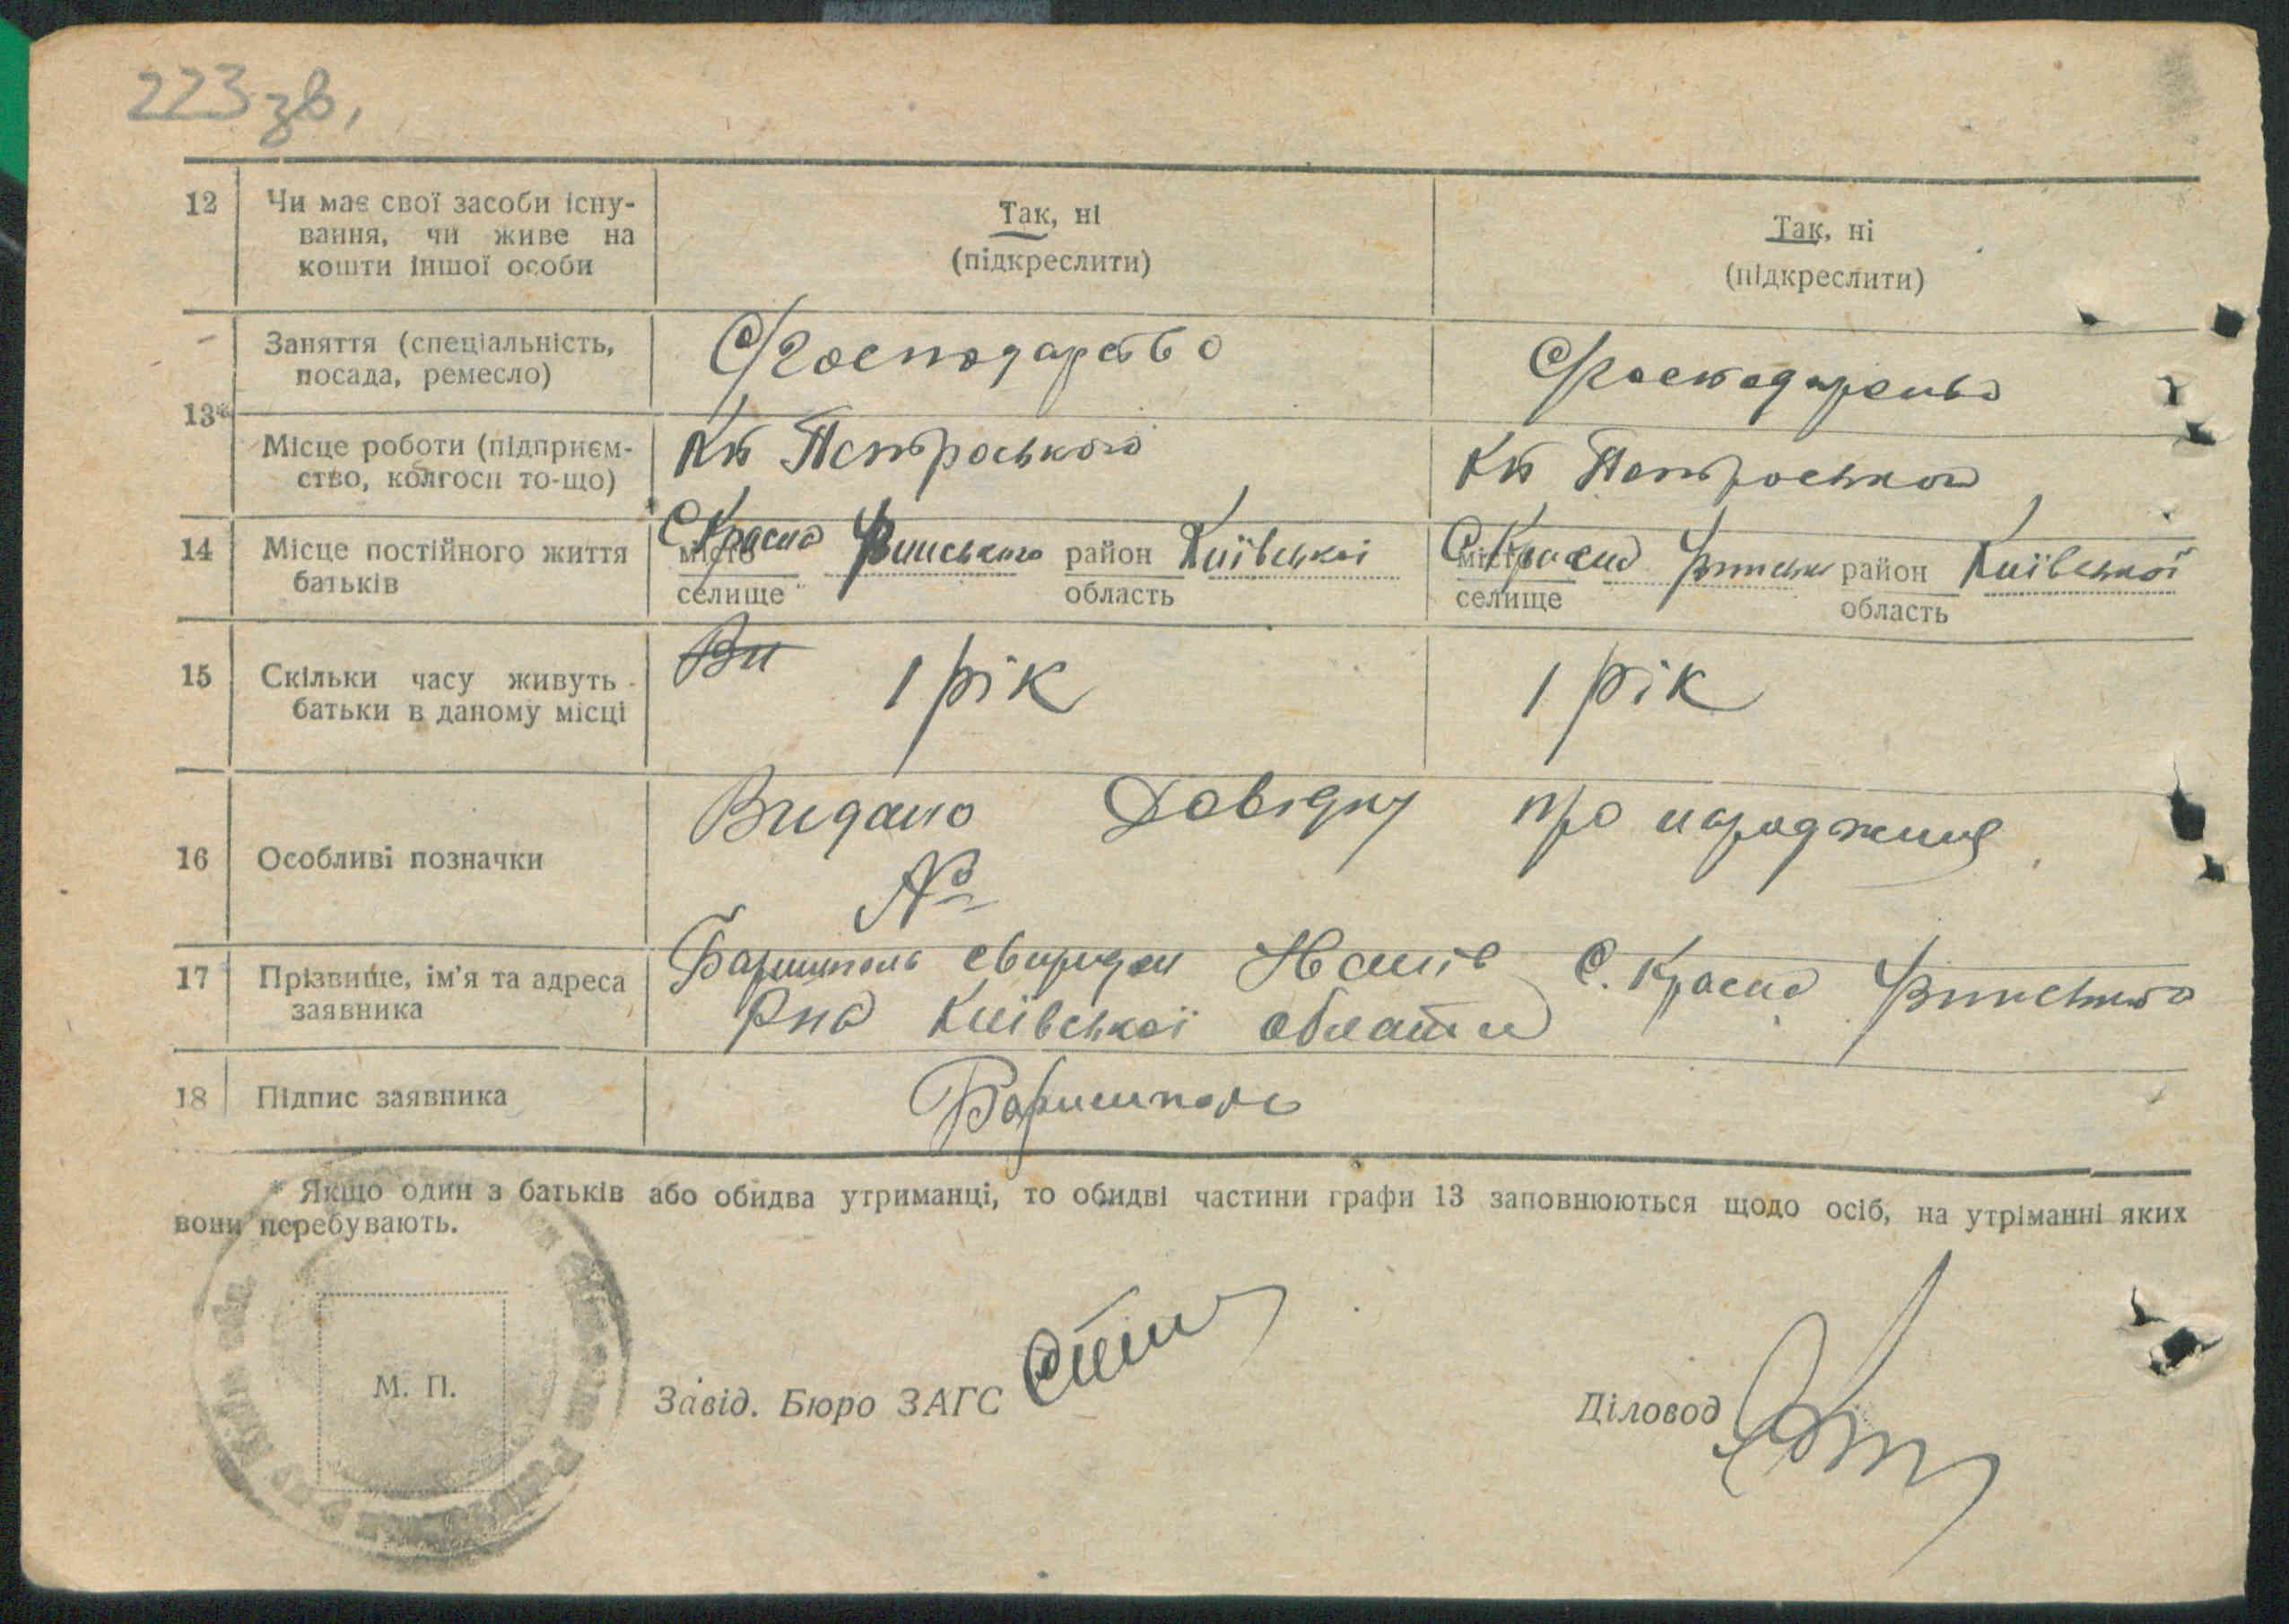 223 зв.
12 Чи має свої засоби існу-
вання, чи живе на
кошти іншої особи
Так, ні
(підкреслити)
Так, ні
(підкреслити)
13*
Заняття (спеціальність,
посада, ремесло)
С/Господарство
С/Господарство
Місце роботи (підприєм-
ство, колгосп то-що)
Кп Петроського
Кп Петроського
14 Місце постійного життя
батьків
місто С Красна район Київської
селище область
місто С Красна район Київської
селище область
15 Скільки часу живуть
батьки в даному місці
Ви 1 рік
1 рік
16 Особливі позначки
Видано Довідку про народження
№
17 Прізвище, ім'я та адреса
заявника
Баришполь С. Красна
Рна Київської області
18 Підпис заявника
Баришполь
* Якщо один з батьків або обидва утриманці, то обидві частини графи 13 заповнюються щодо осіб, на утріманні яких
вони перебувають.
М. П.
Завід. Бюро ЗАГС
Діловод